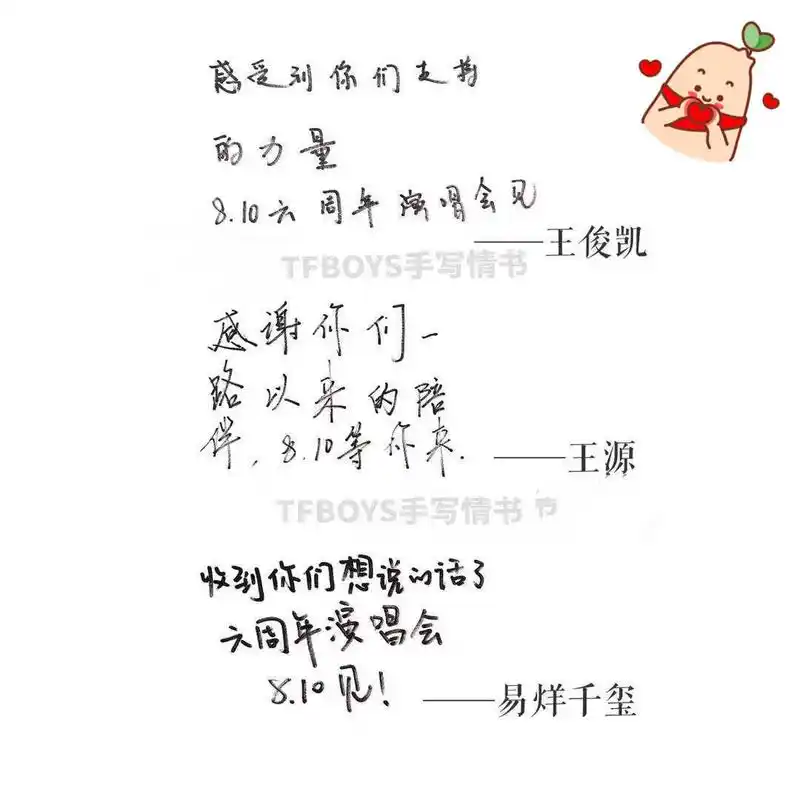 感受到你们支持
的力量
8.10六周年演唱会见
——王俊凯
TFBOYS手写情书
感谢你们一
路以来的陪
伴,8.10等你来.
——王源
TFBOYS手写情书
收到你们想说的话了
六周年演唱会
8.10见!
——易烊千玺